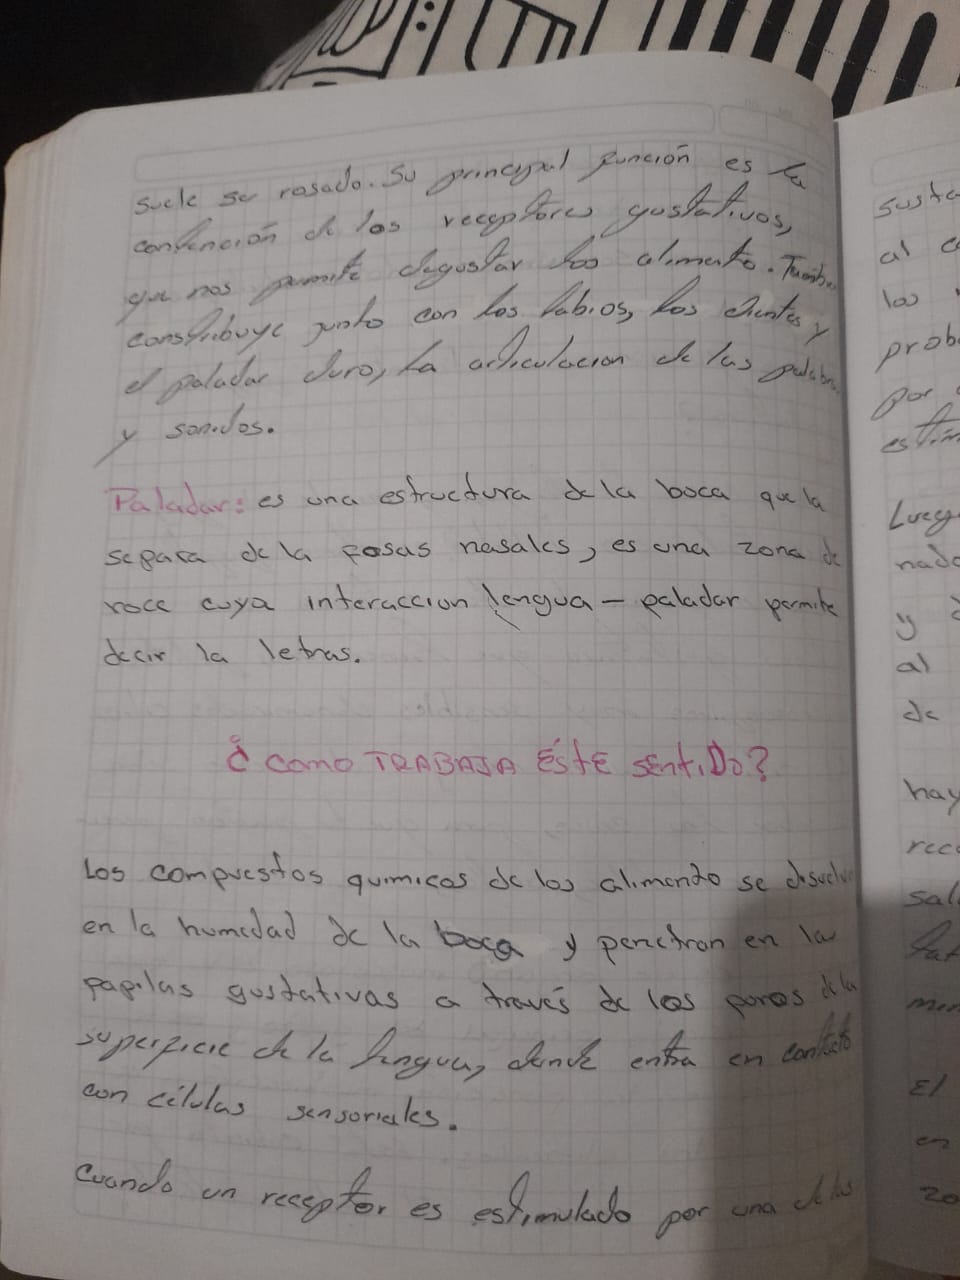 suele ser rosado. Su principal función es la
contención de los receptores gustativos,
que nos permite degustar los alimento. Tambie
constribuye junto con los labios, los dientes y
el paladar duro, la articulacion de las palabra
y sonidos.
Paladar: es una estructura de la boca que la
separa de la fosas nasales, es una zona de
roce cuya interaccion lengua - paladar permite
decir la letras.
¿COMO TRABAJA ÉSTE SENTIDO?
Los compuestos quimicos de los alimento se disuelve
en la humedad de la boca y penetran en las
papilas gustativas a través de los poros de la
superficie de la lengua, donde entra en contacto
con células sensoriales.
Cuando un receptor es estimulado por una de las
susta
al
los
prob
por
estim
Lueg
nado
y
al
de
hay
rec
sal
El
en
zo